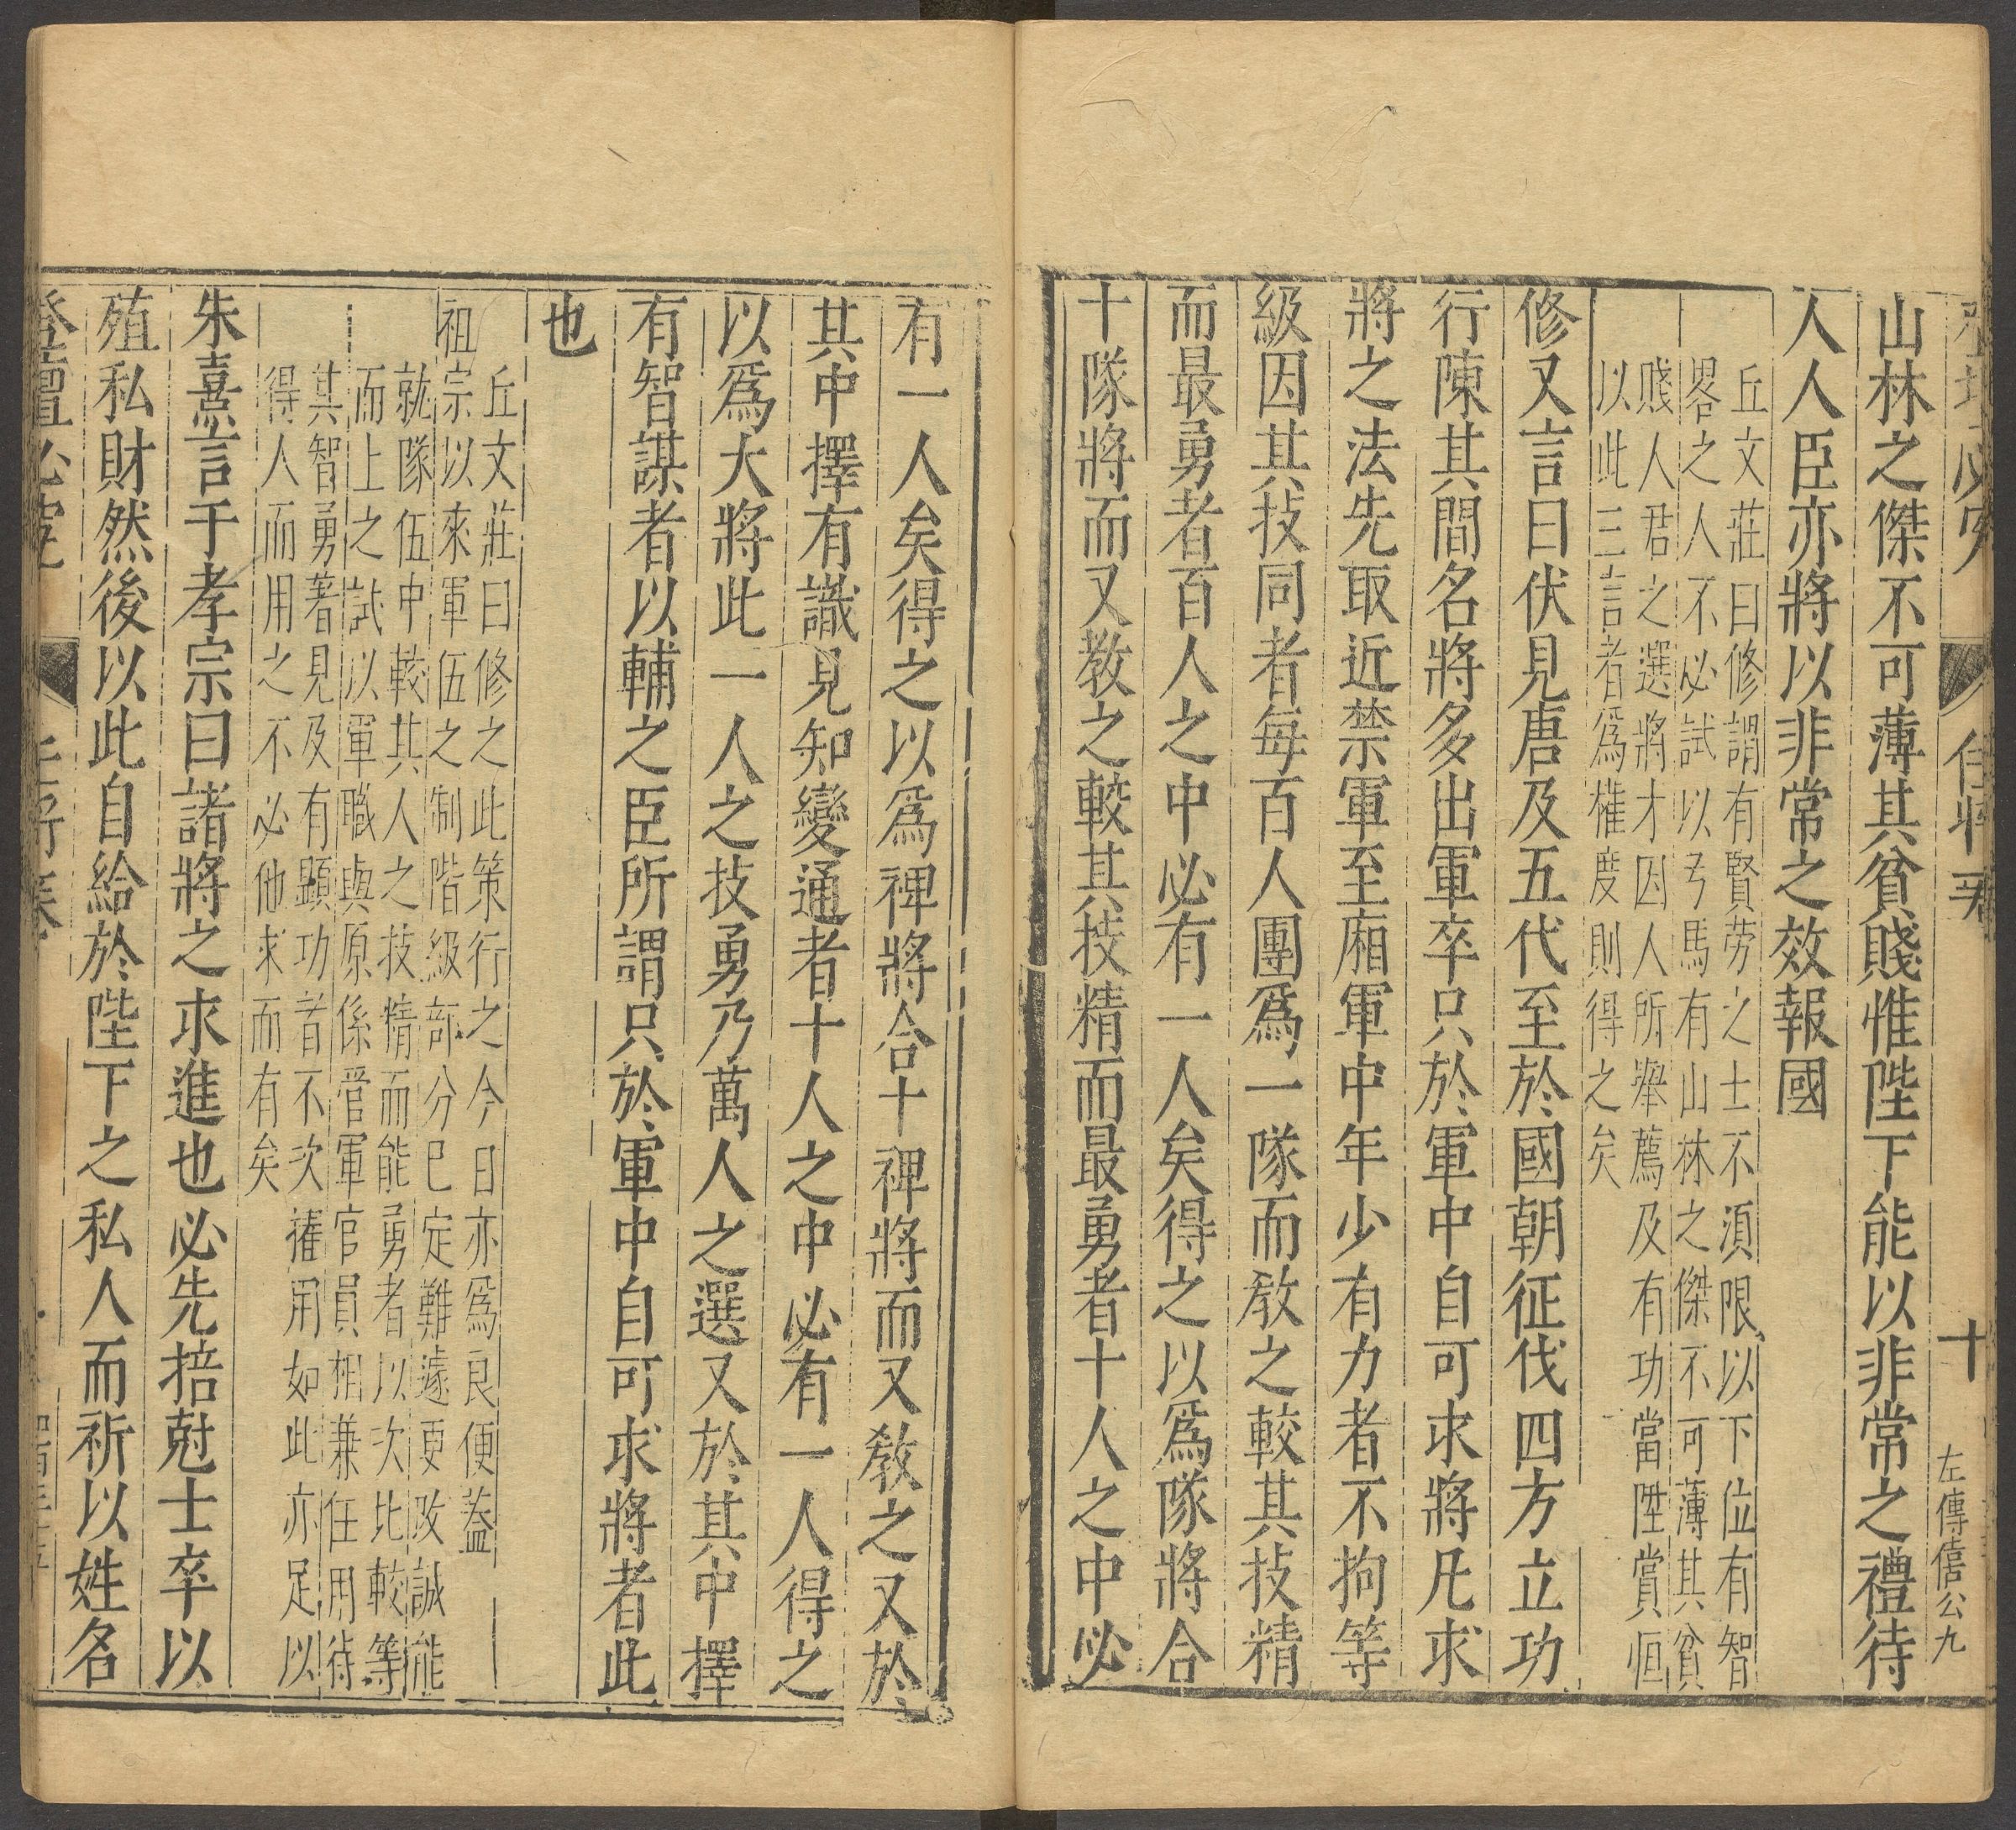 山林之傑不可薄其貧賤惟陛下能以非常之禮待
人人臣亦將以非常之效報國
丘文莊曰修謂有賢勞之士不須限以下位有智
畧之人不必試以弓馬有山林之傑不可薄其貧
賤人君之選將才因人所舉薦及有功當陞賞恒
以此三言者爲權度則得之矣
修又言曰伏見唐及五代至於國朝征伐四方立功
行陳其間名將多出軍卒只於軍中自可求將凡求
將之法先取近禁軍至廂軍中年少有力者不拘等
級因其技同者每百人團爲一隊而教之較其技精
而最勇者百人之中必有一人矣得之以爲隊將合
十隊將而又教之較其技精而最勇者十人之中必
十
左傳僖公九
有一人矣得之以爲裨將合十裨將而又教之又於
其中擇有識見知變通者十人之中必有一人得之
以爲大將此一人之技勇乃萬人之選又於其中擇
有智謀者以輔之臣所謂只於軍中自可求將者此
也
丘文莊曰修之此策行之今日亦爲良便葢
祖宗以來軍伍之制階級部分已定難遽更改誠能
就隊伍中較其人之技精而能勇者以次比較等
而上之試以軍職與原係管軍官員相兼任用待
其智勇著見及有顯功首不次擢用如此亦足以
得人而用之不必他求而有矣
朱熹言于孝宗曰諸將之求進也必先掊尅士卒以
殖私財然後以此自給於陛下之私人而祈以姓名
登壇必究